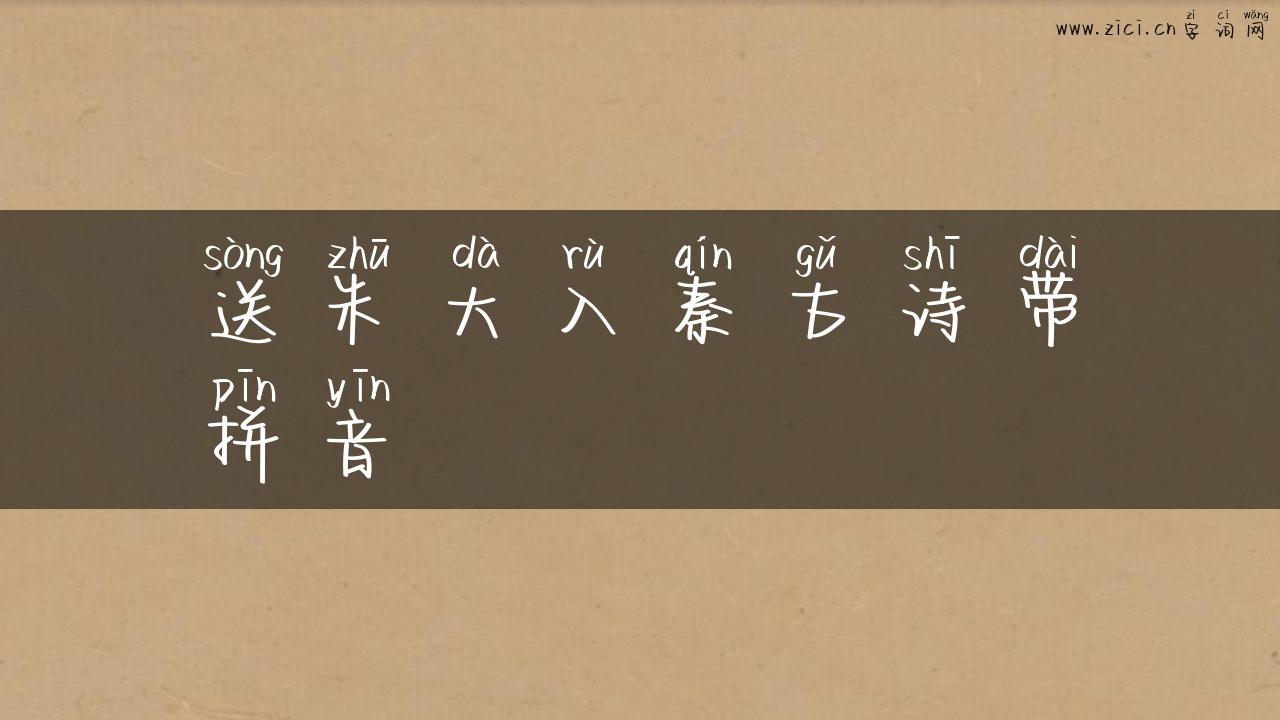 zì cí wǎng
www.zici.cn 字 词 网
sòng zhū dà rù qín gǔ shī dài
送 朱 大 入 秦 古 诗 带
pīn yīn
拼 音